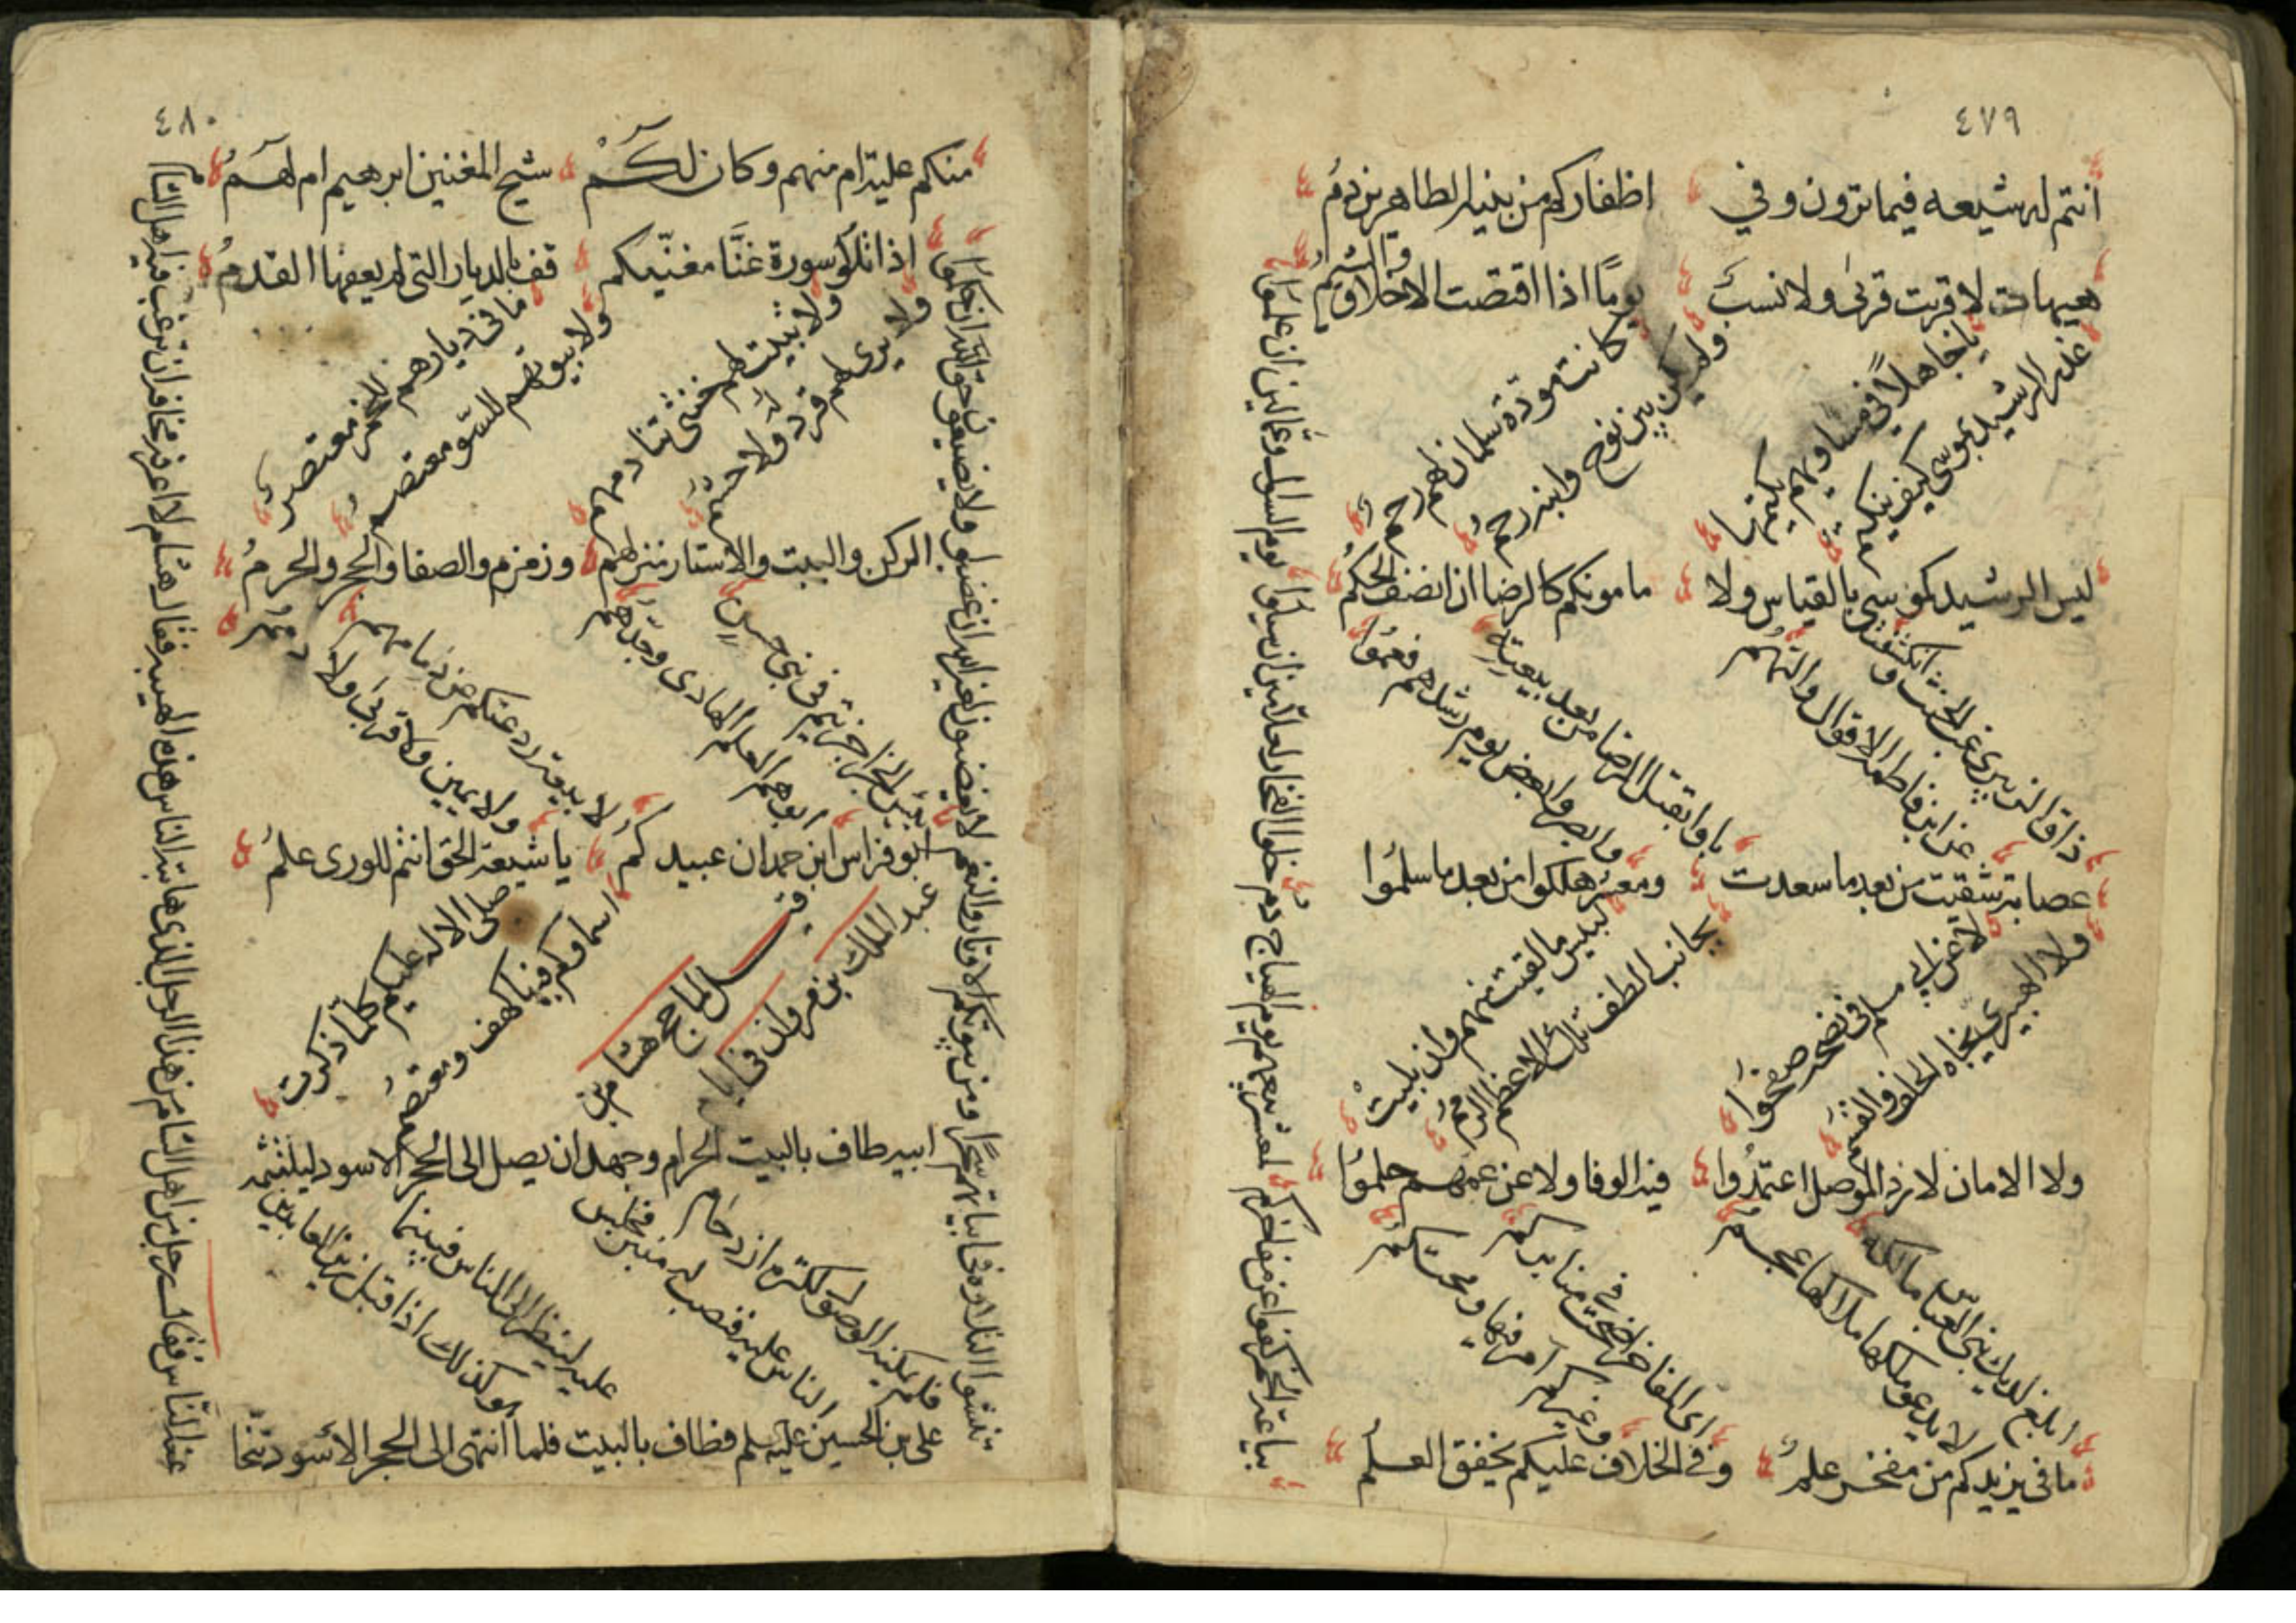 ٤٧٩
انتم له شيعه فيما ترون وفي اظفاركم من بنيه الطاهرين دمُ
هيهات لا قربت قربى ولا نسبٌ يومًا اذا اقتضت الاخلاق والشيمُ
كانت مودّة سلمان لهم رحمٌ
ولم يكن بين نوح وابنه رحمُ
يا جاهلاً في مساويهم يكتمها
غدر الرشيد بموسى كيف ينكتم
ليس الرشيد كموسى بالقياس ولا مامونكم كالرضا ان انصف الحكمُ
ذاق الزبيرى غب الحنث وانكشفت
عن ابن فاطمة الاقوال والتهمُ
باوا بقتل الرضا من بعد بيعتهِ
وابصروا بعض يوم رشدهم فعموُا
عصابة شقيت من بعد ما سعدت ومعشر هلكوا من بعد ما سلموُا
لبيس ما لقيت منهم وان بليتْ
بجانب الطف تلك الاعظم الرممُ
لا عن ابى مسلم فى نصحه صفحوا
ولا الهبيرى نجاه الحلف والقسمُ
ولا الامان لازد الموصل اعتمدُوا فيه الوفا ولا عن عمهم حلموُا
ابلغ لديك بنى العباس مالكه
لا يدعو ملكها ملاكها عجم
اى المفاخر اضحت في منابركم
وغيركم آمر فيها ومحتكمُ
ما فى يزيدكم من مفخر علمُ وفى الخلاف عليكم يخفق العلمُ
يا باعة الخمر كفوا عن مفاخركم لمعشر بيعهم يوم الهياج دم خلوا الفخار لعلامين ان سيلوُا يوم السوال وعمالين ان علموُا
٤٨٠
منكم عليّة ام منهم وكان لكُمْ شيخ المغنين ابرهيم ام لهمُ
اذا تلَوْا سورة غنَّا مغنّيكم قف بالديار التى لم يعفها القدمُ
ما فى ديارهم للخمر معتصرٌ
ولا بيوتهم للسّو معتصم
ولا تبيت لهم خنثى تنادمهم
ولا يرى لهم قرد ولا حشم
الركن والبيت والاستار منزلهم وزمزم والصفا والحجر والحرمُ
بيس الجزا جزيتم فى بنى حسنٍ
ابوهم العلم الهادى وجدّهم
لا بيعة ردعتكم عن دمآمهم
ولا يمين ولا قربى ولا ذممُ
ابو فراس ابن حمدان عبيدكُم يا شيعة الحق انتم للورى علمُ
صلى الاله عليكم كلما ذكرت
اسماوكم فينا كهف ومعتصمُ
قيل لما حج هشام بن
عبد الملك بن مروان فى ايام
ابيه طاف بالبيت الحرام وجهد ان يصل الى الحجر الاسود ليلثمه
فلم يكنه الوصول لكثرة ازدحام
الناس عليه فنصب له منبر فجلس
عليه لينظر الى الناس فبينما
هو كذلك اذا قبل زين العابدين
على بن الحسين عليه سلم فطاف بالبيت فلما انتهى الى الحجر الاسود تنحّا
عنه الناس فقال رجل من اهل الشام من هذا الرجل الذى هابته الناس هذه الهيبه فقال هشام لا اعرفه مخافة ان ترغب فيه اهل الشام
تنشوا التلاوة فى ابياتهم سحرًا ومن بيوتكم الاوتار والنغم لا يغضبون لغير الله ان غضبوا ولا يضيعون حق الله ان حكموُا